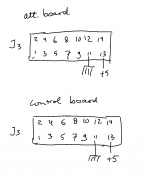 att. board
J3
2 4 6 8 10 12 14
1 3 5 7 9 11 13
+5
control board
J3
2 4 6 8 10 12 14
1 3 5 7 9 11 13
+5